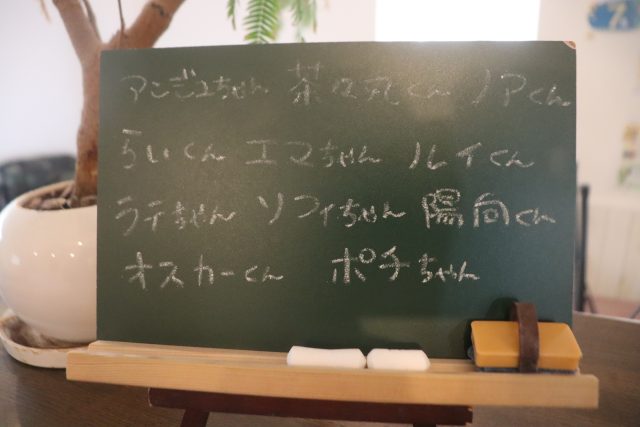 アンジュちゃん 茶々丸くん ノアくん
らいくん エマちゃん ルイくん
ラテちゃん ソフィちゃん 陽向くん
オスカーくん ポチちゃん